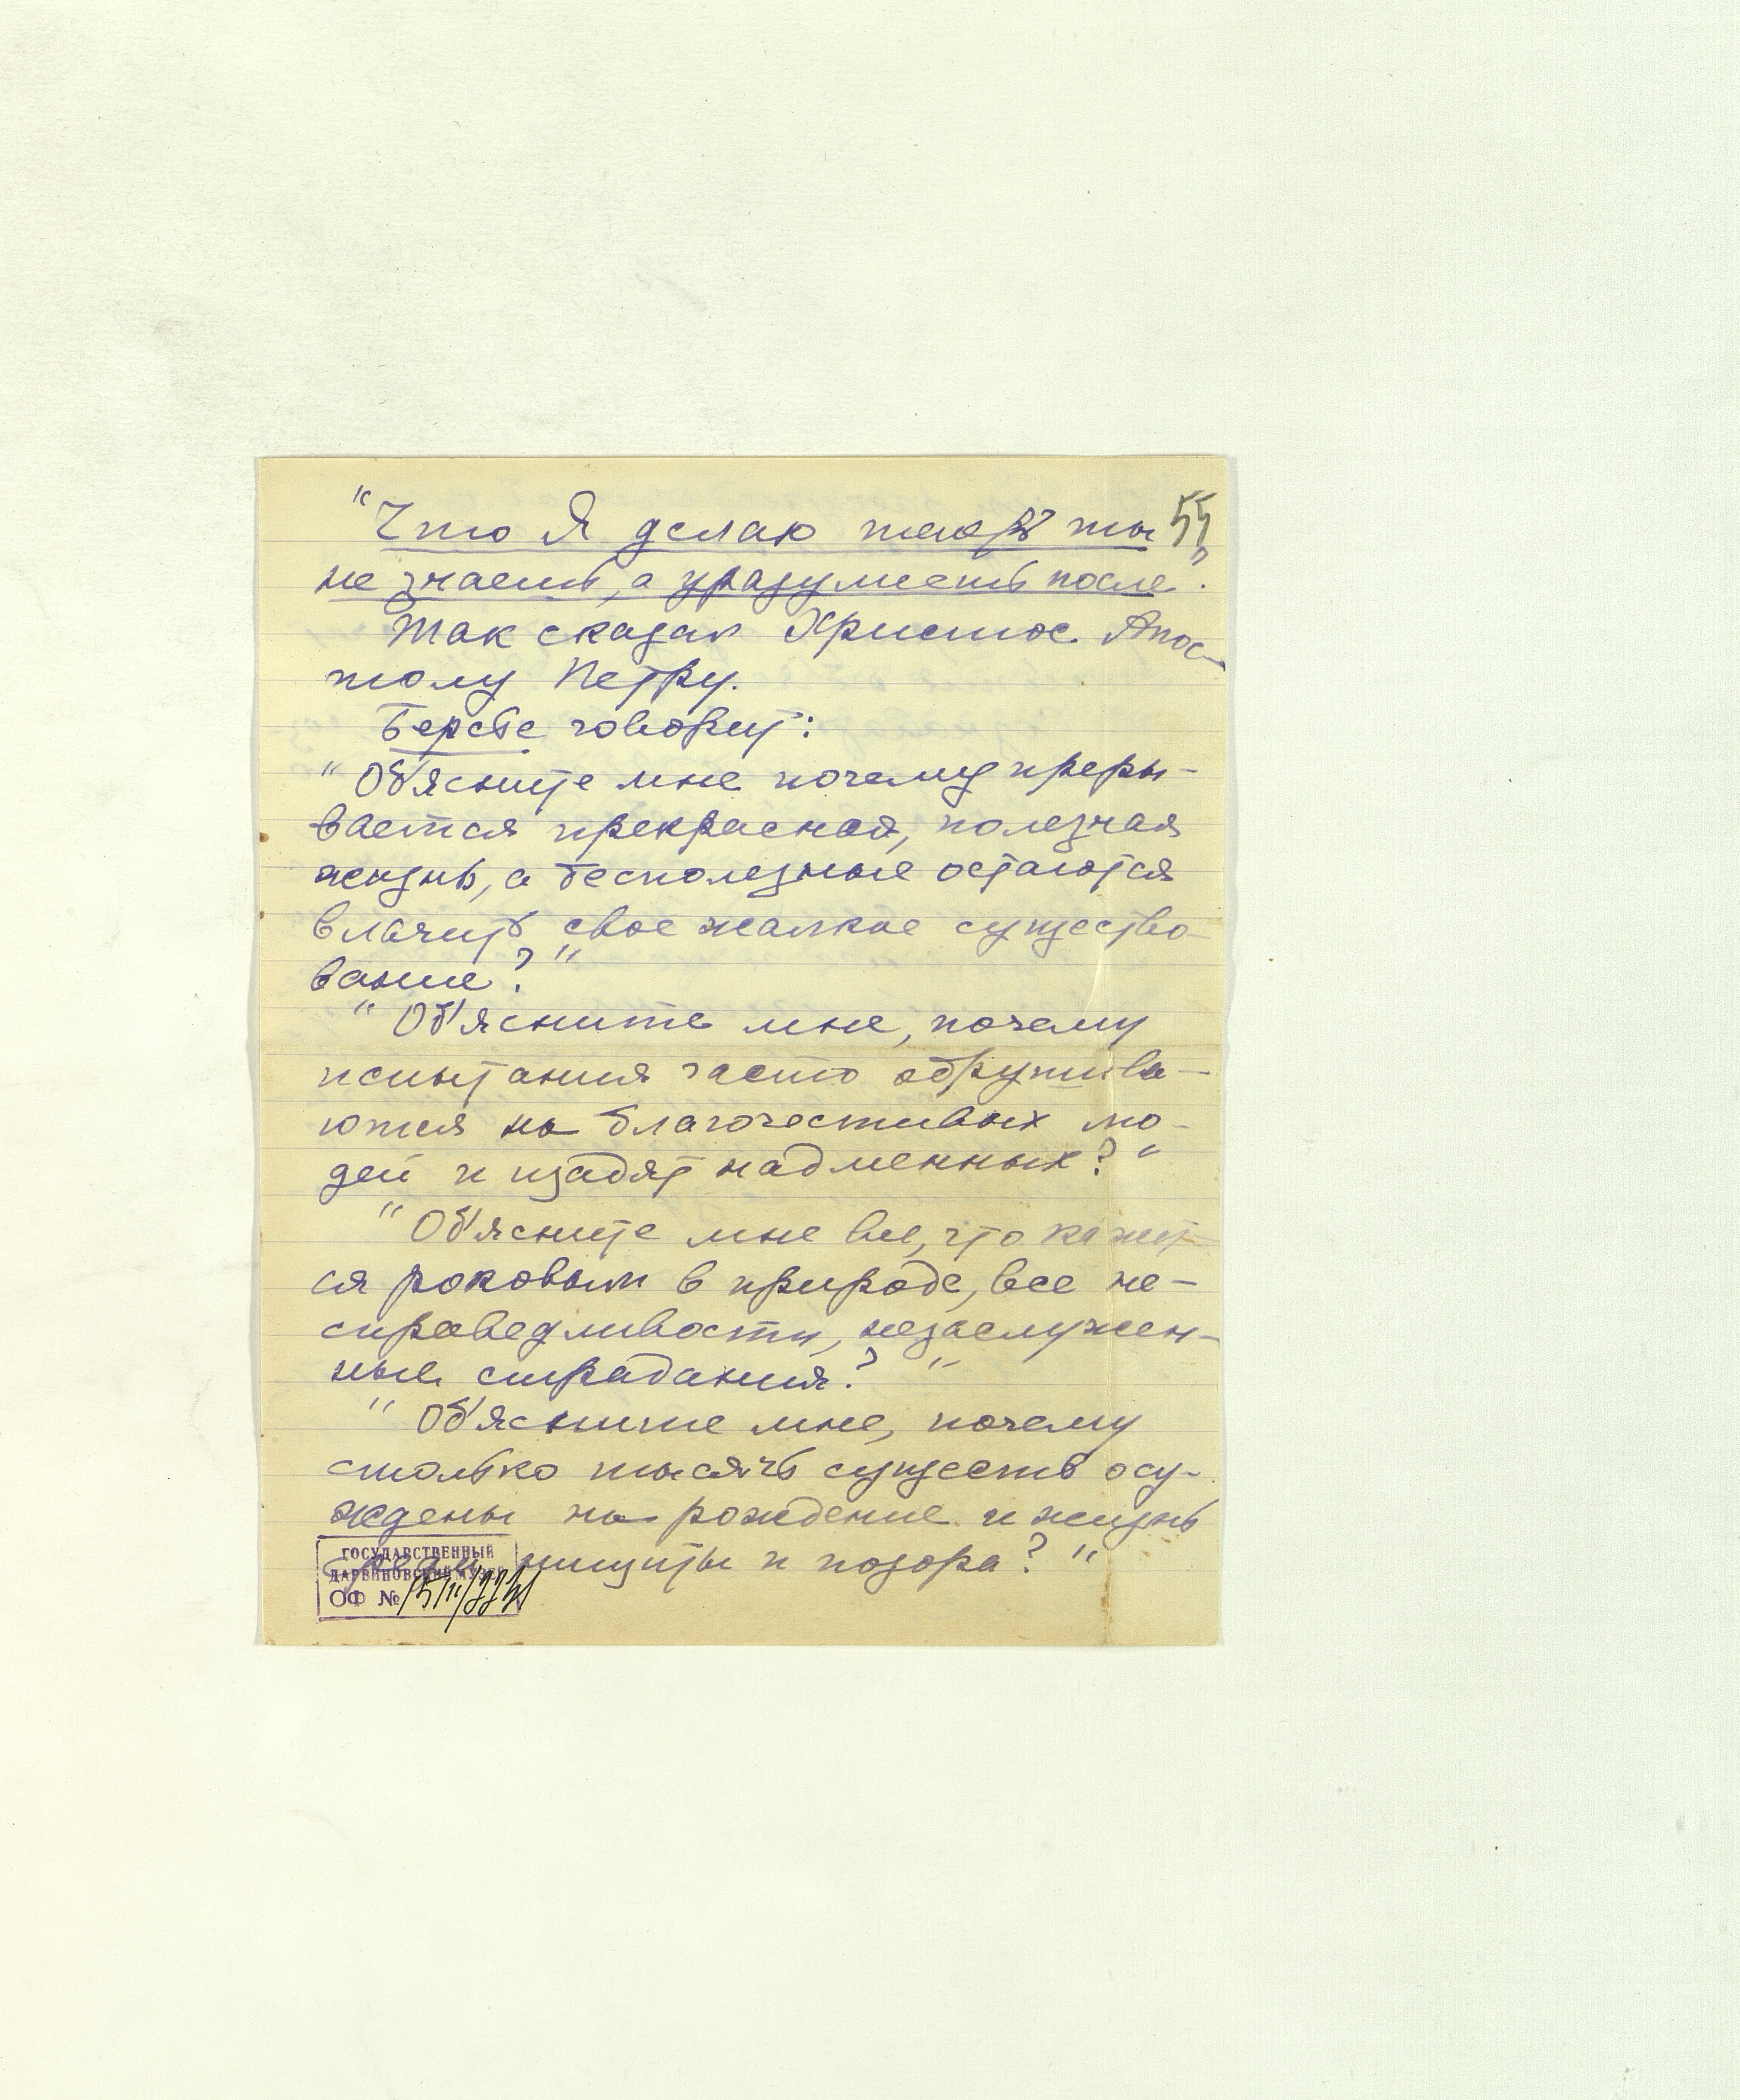 55
"Что Я делаю теперь ты
не знаешь, а уразумеешь после".
Так сказал Христос Апос-
толу Петру.
Берсье говорит:
"Об'ясните мне почему преры-
вается прекрасная, полезная
жизнь, а бесполезные остаются
влачить свое жалкое существо-
вание?"
"Об'ясните мне, почему
испытания часто обрушива-
ются на благочестивых лю-
дей и щадят надменных?"
"Об'ясните мне все, что кажет-
ся роковым в природе, все не-
справедливости, незаслужен-
ные страдания?"
"Об'ясните мне, почему
столько тысячь существ осу-
ждены на рождение и жизнь
среди нищиты и позора?"
ГОСУДАРСТВЕННЫЙ
ДАРВИНОВСКИЙ МУЗЕЙ
ОФ №